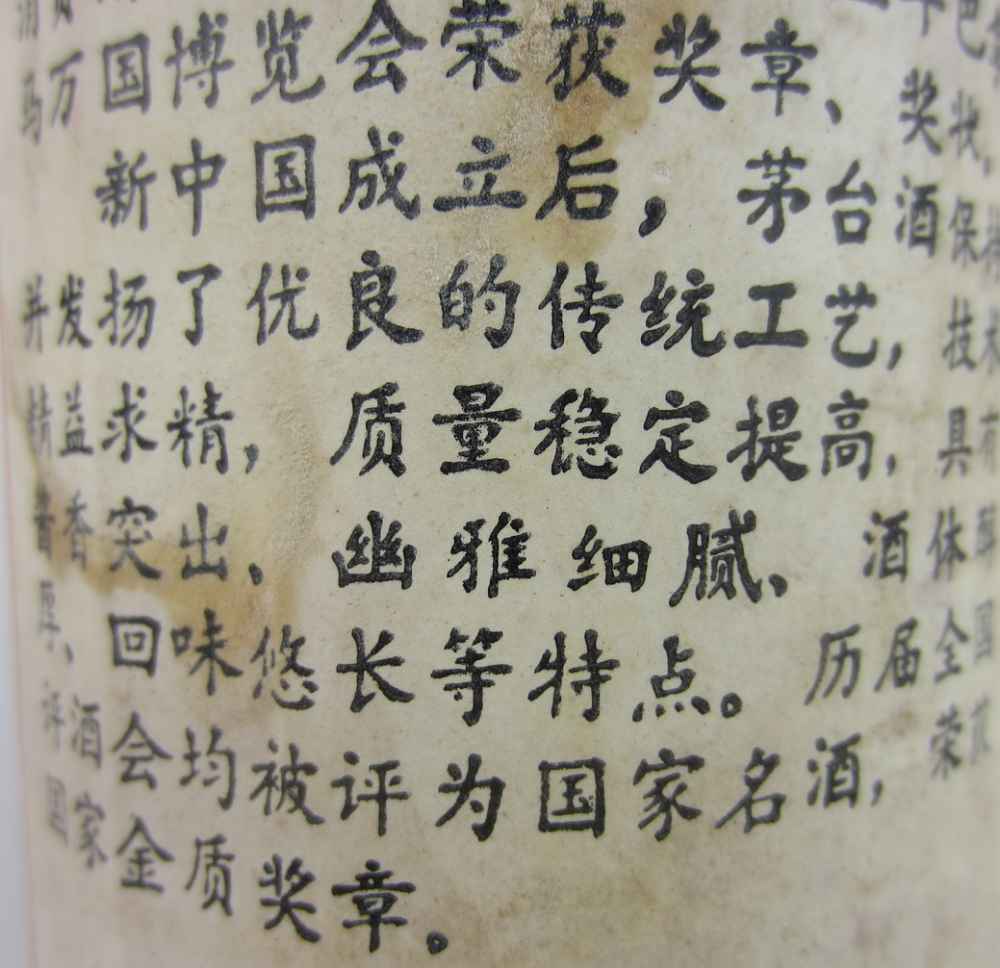 马万国博览会荣获奖章、奖状.
新中国成立后，茅台酒保持
并发扬了优良的传统工艺，技术
精益求精，质量稳定提高，具有
酱香突出、幽雅细腻、酒体醇
厚、回味悠长等特点。历届全国
评酒会均被评为国家名酒，荣获
国家金质奖章。